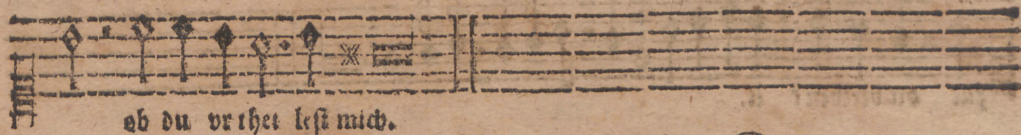 ob du vrthei lest mich.